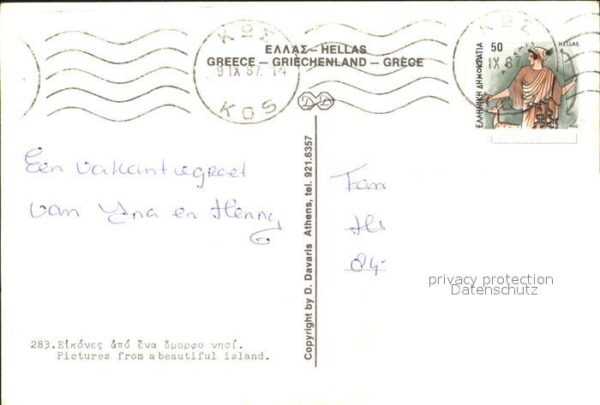 ΕΛΛΑΣ – HELLAS
GREECE – GRIECHENLAND – GRÈCE
ΚΩΣ
9 IX 87. 14
KOS
ΚΩΣ
IX 87
50
HELLAS
ΕΛΛΗΝΙΚΗ ΔΗΜΟΚΡΑΤΙΑ
Een vakantiegroet
van Ina en Henny
Fam
84-
privacy protection
Datenschutz
Copyright by D. Davaris Athens, tel. 921.6357
283.Εἰκόνες ἀπό ἕνα ὄμορφο νησί.
Pictures from a beautiful island.